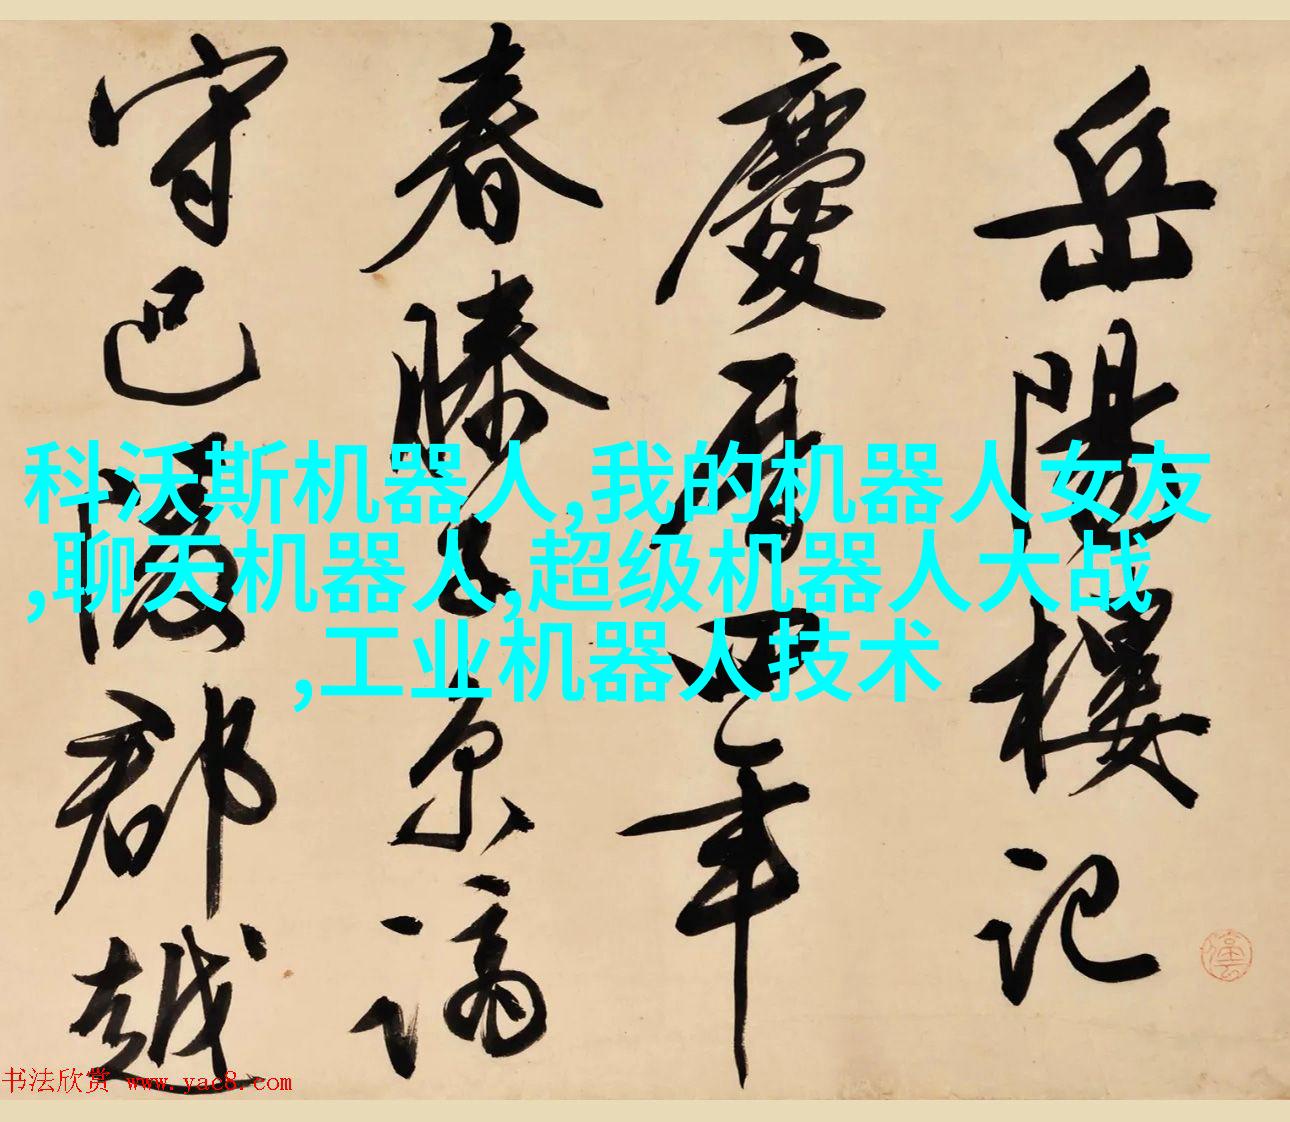 岳陽樓記
慶曆四年
春滕子京謫
守巴陵郡越
科沃斯机器人,我的机器人女友
,聊天机器人,超级机器人大战
,工业机器人技术
书法欣赏 www.yac8.com